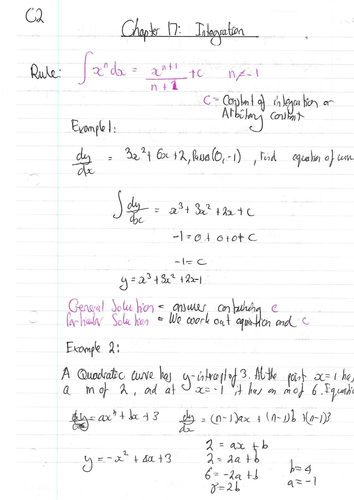 C2
Chapter 17: Integration
Rule: ∫x^n dx = x^(n+1)/(n+1) + c   n ≠ -1
C = Constant of integration or
Arbitrary constant
Example 1:
dy/dx = 3x² + 6x + 2, Passes (0, -1), Find equation of curve
∫dy/dx = x³ + 3x² + 2x + c
-1 = 0 + 0 + 0 + C
-1 = C
y = x³ + 3x² + 2x - 1
General Solution = answer containing c
Particular Solution = We work out equation and c
Example 2:
A Quadratic curve has y-intercept of 3. At the point x = 1 has
a m of 2, and at x = -1 it has an m of 6. Equati
dy/dx = (n-1)ax + (n-1)b + (n-1)3
y = -x² + 4x + 3
2 = ax + b
2 = 2a + b
6 = -2a + b
8 = 2b
b = 4
a = -1